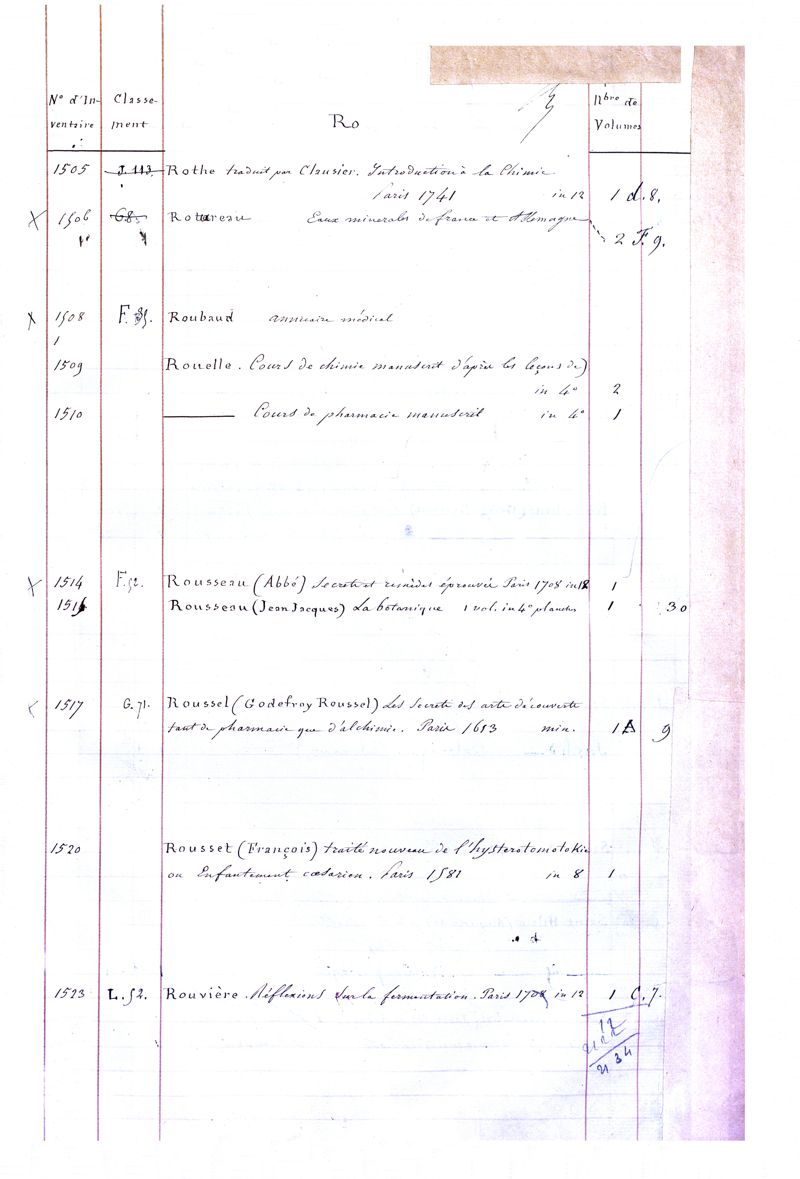 N° d'In- Classe- Nbre de
ventaire ment Ro Volumes
1505 J. 113. Rothe traduit par Clausier. Introduction à la Chimie
Paris 1741 in 12 1 d. 8.
X 1506 G8 Rotureau Eaux minerales de france et Allemagne
2 F. 9.
X 1508 F. Roubaud annuaire médical
1
1509 Rouelle. Cours de chimie manuscrit d'après les leçons de)
in 4° 2
1510 ——— Cours de pharmacie manuscrit in 4° 1
X 1514 F. 52. Rousseau (Abbé) Secrets et remèdes éprouvés Paris 1708 in 12 1
1516 Rousseau (Jean Jacques) La botanique 1 vol. in 4° planches 1 30
X 1517 G. 71. Roussel (Godefroy Roussel) Les secrets des arts découverts
tant de pharmacie que d'alchimie. Paris 1613 min. 1 A 9
1520 Rousset (François) traité nouveau de l'hysterotomotokie
ou Enfantement cœsarien. Paris 1581 in 8 1
1523 L. 52. Rouvière. Réflexions sur la fermentation. Paris 1708 in 12 1 C. 7.
12
34